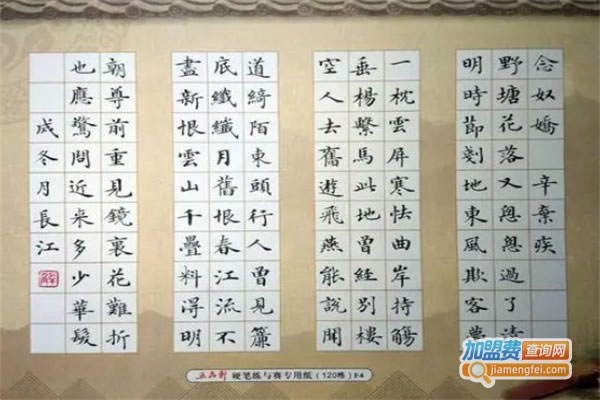 念奴嬌 辛棄疾
野塘花落又悤悤過了清
明時節剗地東風欺客夢
一枕雲屏寒怯曲岸持觴
垂楊繫馬此地曾經別樓
空人去舊遊飛燕能說聞
道綺陌東頭行人曾見簾
底纖纖月舊恨春江流不
盡新恨雲山千疊料得明
朝尊前重見鏡裏花難折
也應驚問近來多少華髮
冬月長江
硬笔练与赛专用纸（120格）F4
加盟费查询网
jiamengfei.com